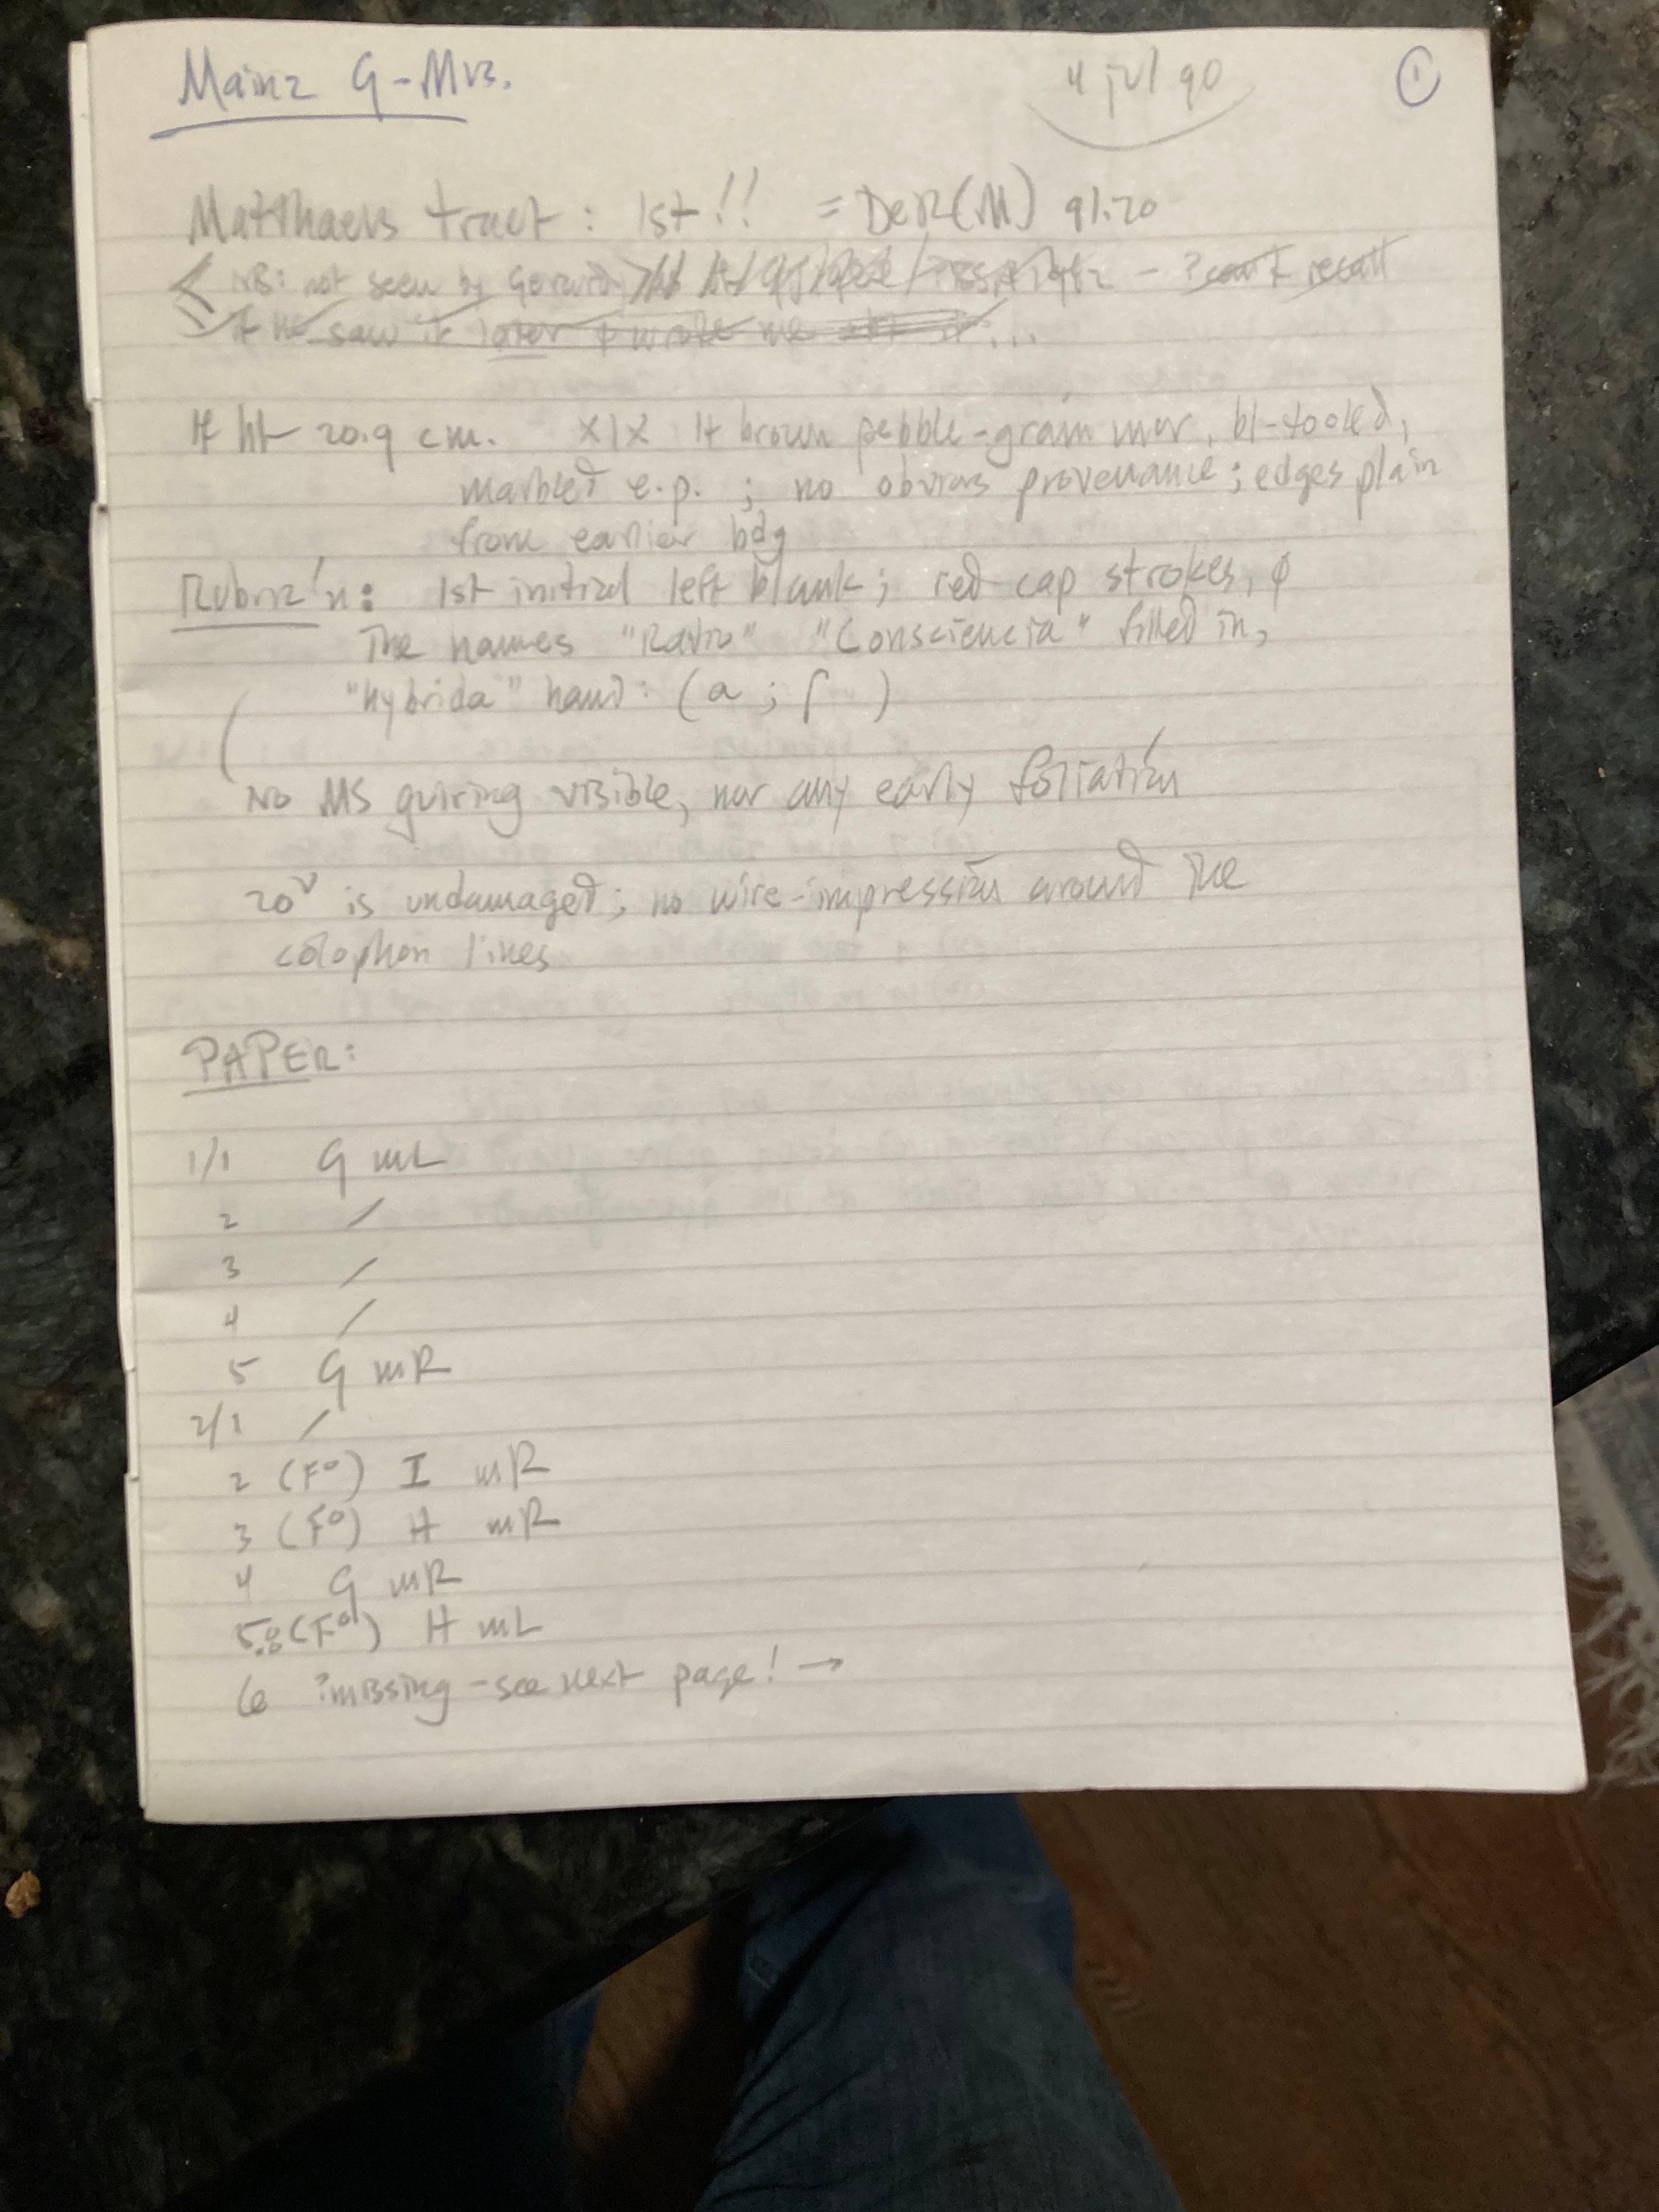 Mainz G-Mus. 4 jul 90 1
Matthaeus tract: 1st!! = DeR(M) 91.20
NB: not seen by 1982 - ? can't recall
if he saw it later & wrote me abt it...
lf ht 20.9 cm. XIX lt brown pebble-grain mor, bl-tooled,
marbled e.p.; no obvious provenance; edges plain
from earlier bdg
Rubric'n: 1st initial left blank; red cap strokes, &
the names "Ratio" "Consciencia" filled in,
"hybrida" hand: (a ; ſ )
No MS quiring visible, nor any early foliation
20v is undamaged; no wire-impression around the
colophon lines
PAPER:
1/1 G mL
2 /
3 /
4 /
5 G mR
2/1 /
2 (F°) I mR
3 (F°) H mR
4 G mR
5: (F°) H mL
6 ?missing - see next page! →